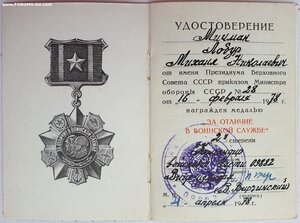 FORUMS-SU.COM
УДОСТОВЕРЕНИЕ
Мичман
Лодур
Михаил Николаевич
от имени Президиума Верховного
Совета СССР приказом Министра
обороны СССР № 28
от "16" февраля 1978 г.
награжден медалью
"ЗА ОТЛИЧИЕ
В ВОИНСКОЙ СЛУЖБЕ"
2й степени
Командир
войсковой части 09882
апреля 1978 г.